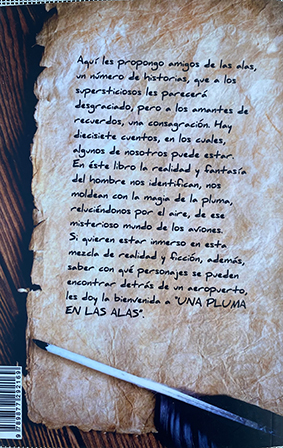 Aquí les propongo amigos de las alas,
un número de historias, que a los
supersticiosos les parecerá
desgraciado, pero a los amantes de
recuerdos, una consagración. Hay
diecisiete cuentos, en los cuales,
algunos de nosotros puede estar.
En éste libro la realidad y fantasía
del hombre nos identifican, nos
moldean con la magia de la pluma,
reluciéndonos por el aire, de ese
misterioso mundo de los aviones.
Si quieren estar inmerso en esta
mezcla de realidad y ficción, además,
saber con qué personajes se pueden
encontrar detrás de un aeropuerto,
les doy la bienvenida a "UNA PLUMA
EN LAS ALAS".
9789877292169